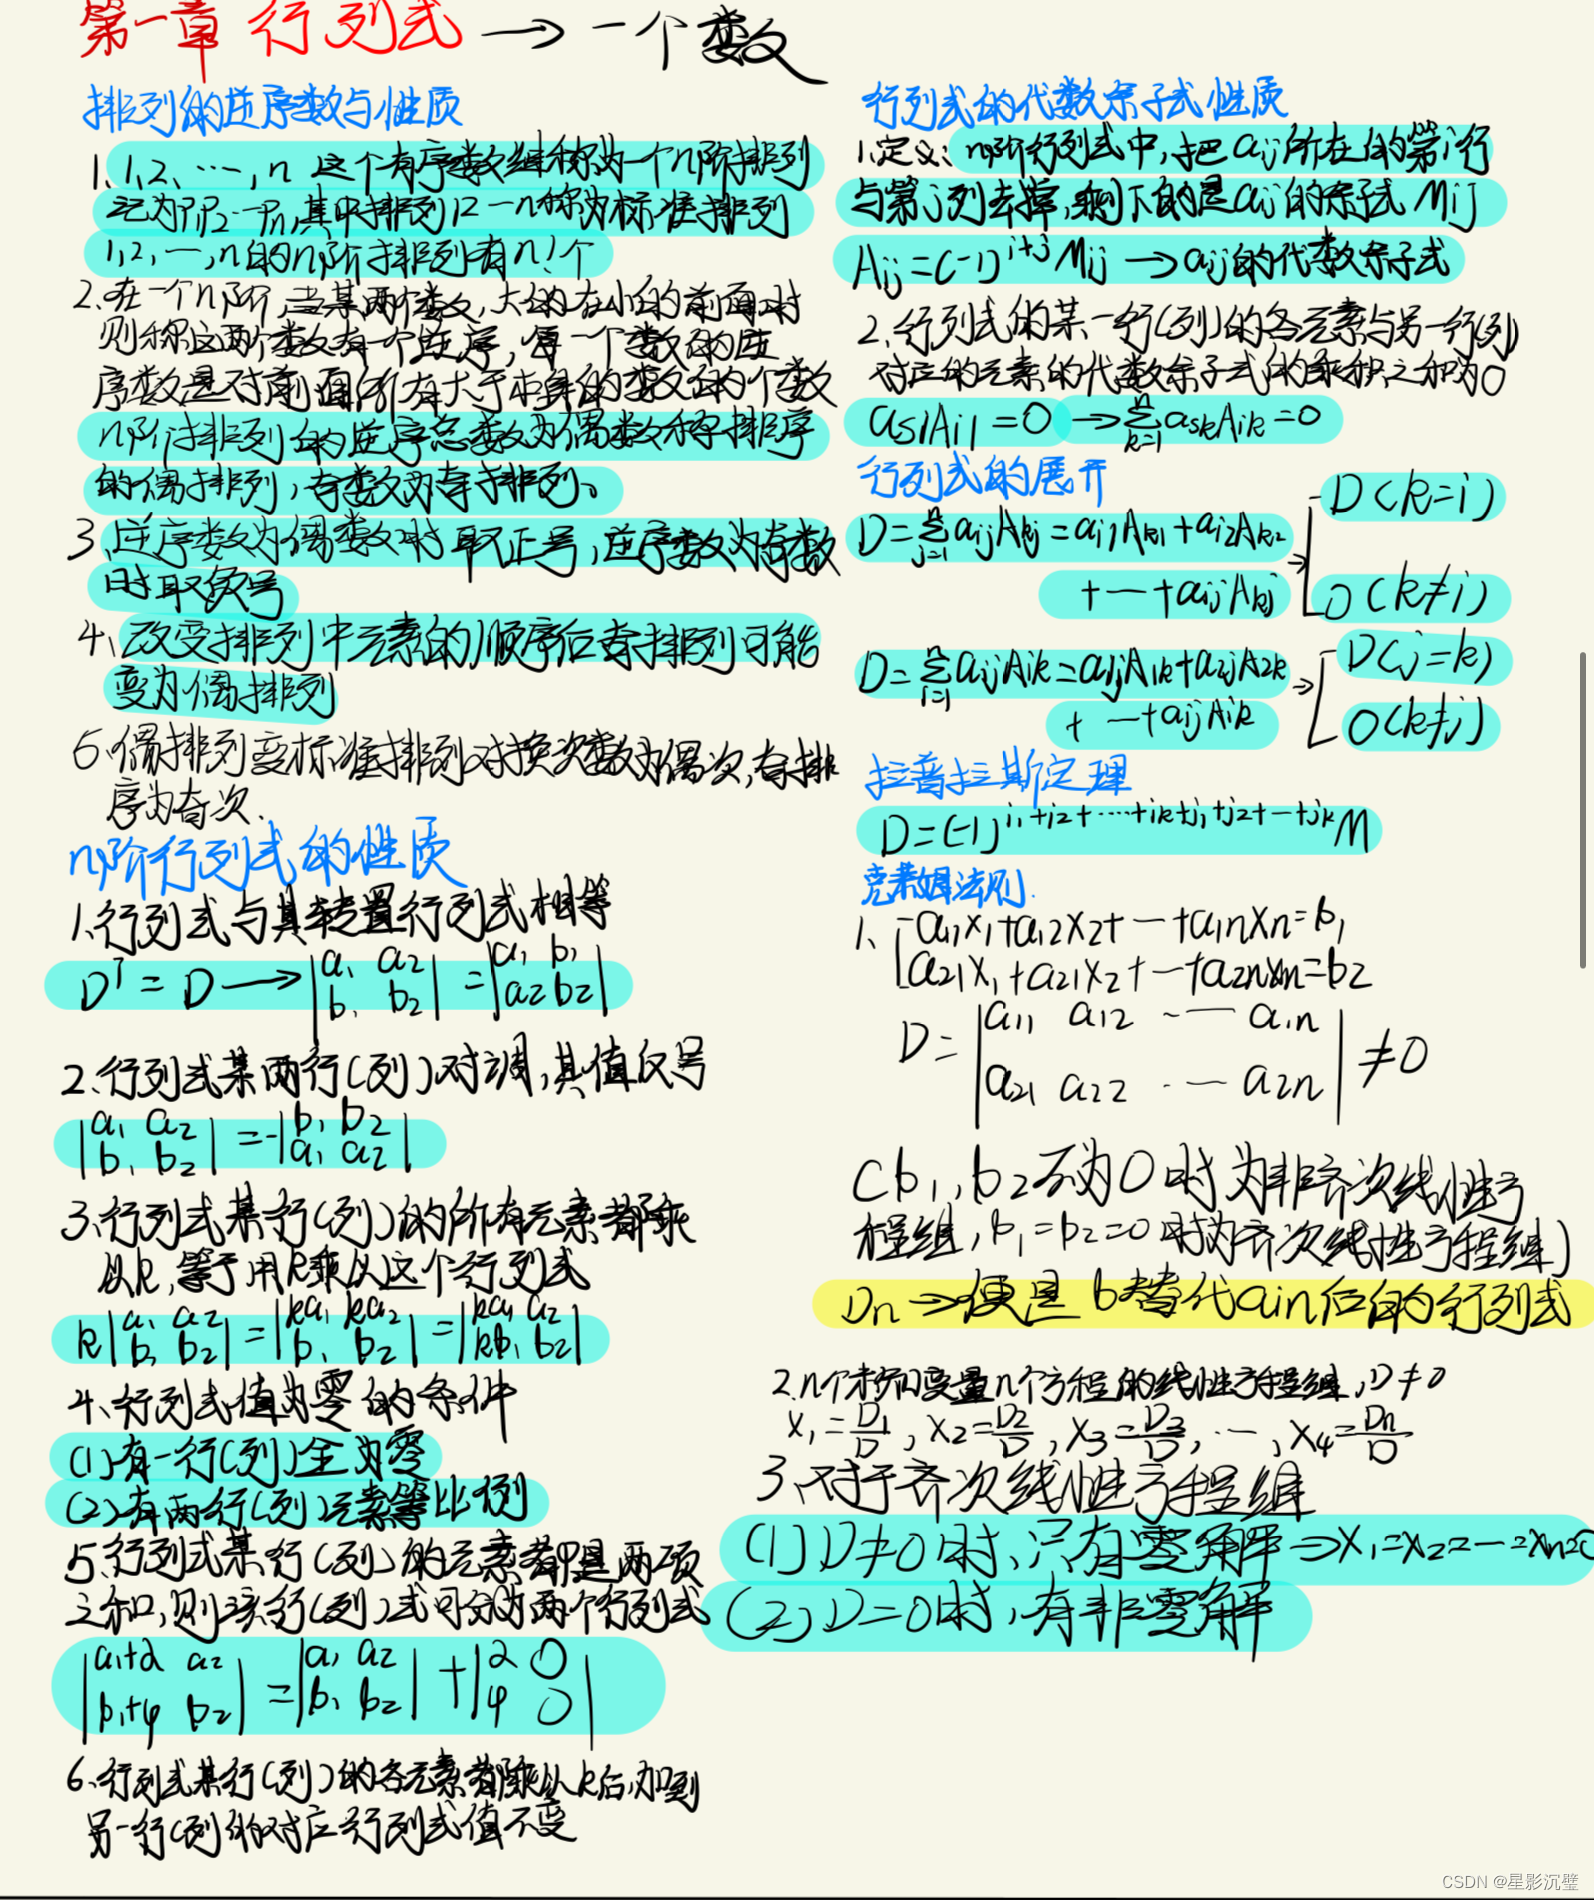 第一章 行列式 → 一个数
排列的逆序数与性质
1、1,2、…,n 这个有序数组称为一个n阶排列
记为P1P2…Pn,其中排列12…n称为标准排列
1,2,…,n的n阶排列有n!个
2、在一个n阶,当某两个数,大的在小的前面时
则称这两个数有一个逆序,每一个数的逆
序数是对前面所有大于本身的数的个数
n阶排列的逆序总数为偶数称排序
的偶排列,奇数为奇排列。
3、逆序数为偶数时取正号,逆序数为奇数
时取负号
4、改变排列中元素的顺序后奇排列可能
变为偶排列
5、偶排列变标准排列对换次数为偶次,奇排
序为奇次.
n阶行列式的性质
1、行列式与其转置行列式相等
D^T = D → |a1 a2; b1 b2| = |a1 b1; a2 b2|
2、行列式某两行(列)对调,其值反号
|a1 a2; b1 b2| = -|b1 b2; a1 a2|
3、行列式某行(列)的所有元素都乘
以k,等于用k乘以这个行列式
k|a1 a2; b1 b2| = |ka1 ka2; b1 b2| = |ka1 a2; kb1 b2|
4、行列式值为零的条件
(1)有一行(列)全为零
(2)有两行(列)元素等比例
5、行列式某行(列)的元素都是两项
之和,则该行(列)式可分为两个行列式
|a1+2 a2; b1+4 b2| = |a1 a2; b1 b2| + |2 0; 4 0|
6、行列式某行(列)的各元素都乘以k后,加到
另一行(列)的对应行列式值不变
行列式的代数余子式性质
1、定义:n阶行列式中,把aij所在的第i行
与第j列去掉,剩下的是aij的余子式Mij
Aij=(-1)^i+j Mij → aij的代数余子式
2、行列式的某一行(列)的各元素与另一行(列)
对应的元素的代数余子式的乘积之和为0
as1Ai1=0 → Σ(k=1→n) askAik=0
行列式的展开
D=Σ(j=1→n) aijAkj=ai1Ak1+ai2Ak2
+…+aijAkj → D(k=i)
0(k≠i)
D=Σ(i=1→n) aijAik=a1jA1k+a2jA2k
+…+aijAik → D(j=k)
0(k≠j)
拉普拉斯定理
D=(-1)^i1+i2+……+ik+j1+j2+…+jk M
克莱姆法则.
1、a11x1+a12x2+…+a1nxn=b1
a21x1+a21x2+…+a2nxn=b2
D=|a11 a12 …… a1n; a21 a22 …… a2n| ≠0
(b1,b2不为0时为非齐次线性方
程组,b1=b2=0时为齐次线性方程组)
Dn→便是b替代ain后的行列式
2、n个未知变量n个方程的线性方程组,D≠0
x1=D1/D,x2=D2/D,x3=D3/D,…,x4=Dn/D
3、对于齐次线性方程组
(1)D≠0时,只有零解→x1=x2=…=xn=0
(2)D=0时,有非零解
CSDN @星影沉璧